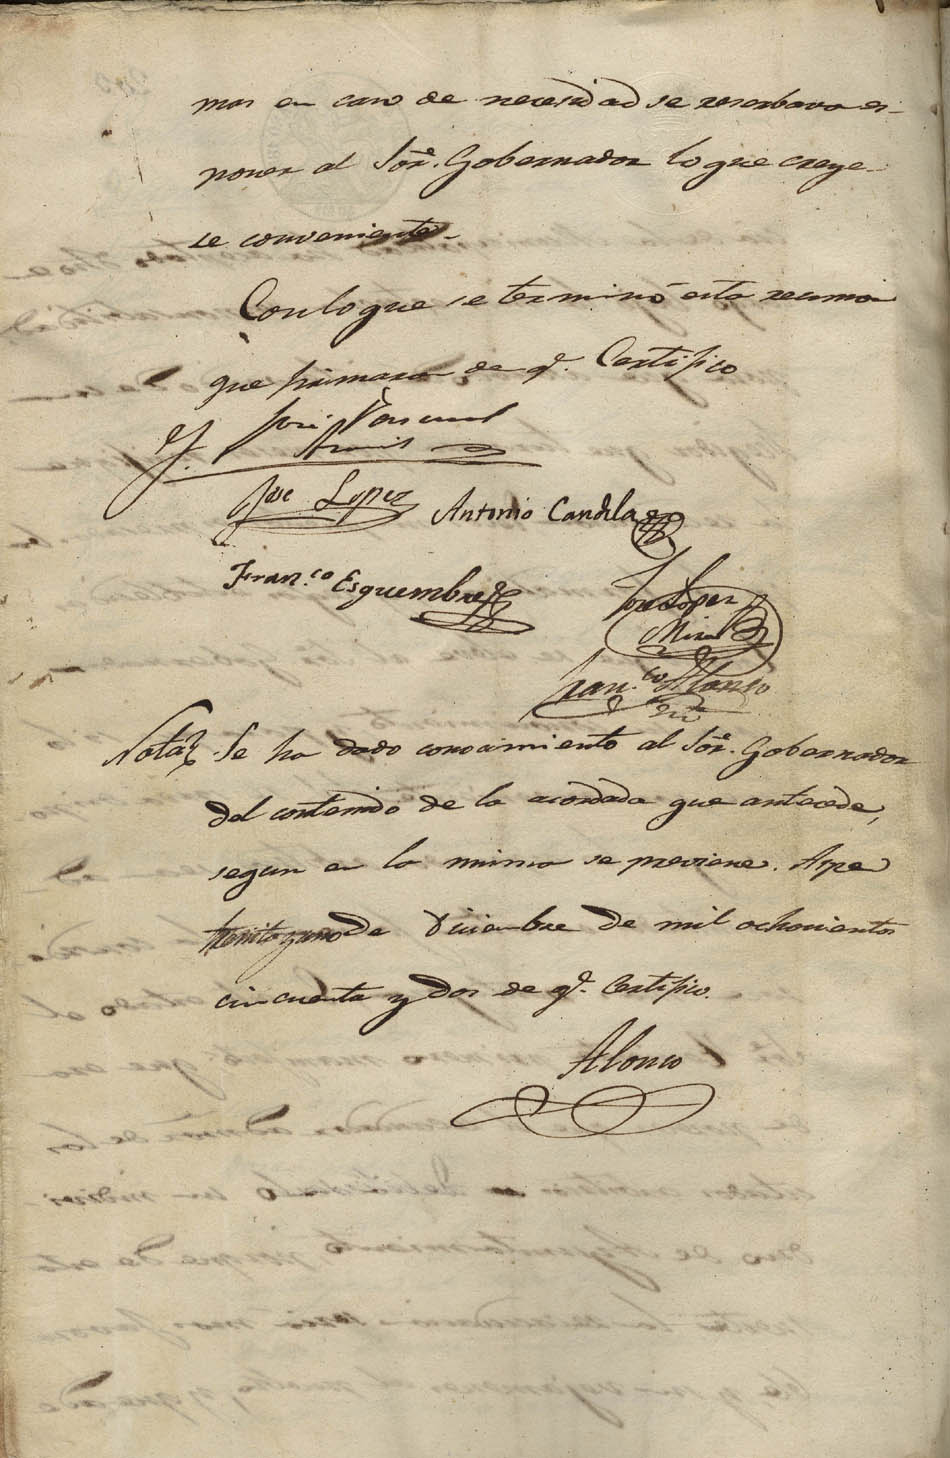 mas en caso de necesidad se reserbava es-
poner al Sor. Gobernador lo que creye-
se conveniente.
Con lo que se terminó esta reunion
que firmaron de q.e Certifico
José Pascual
Jose Lopez Antonio Candela
Fran.co Esquembre Jose Lopez
Mira
Fran.co Alonso
Nota Se ha dado conocimiento al Sor. Gobernador
del contenido de la acordada que antecede,
segun en la misma se previene. Aspe
de Diciembre de mil ochocientos
cincuenta y dos de q.e Certifico.
Alonso